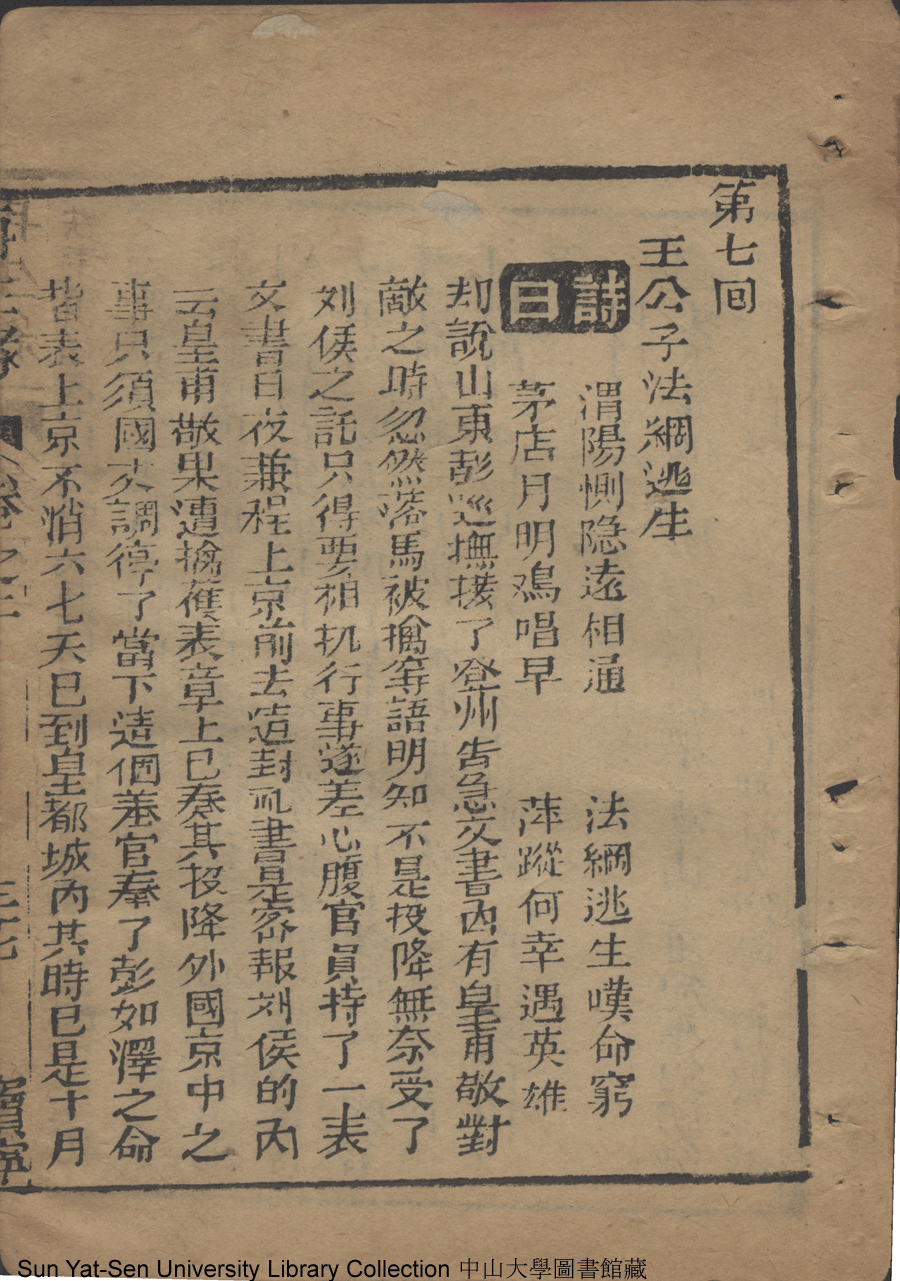 第七回
王公子法綱逃生
詩曰
渭陽惻隐遠相通　法綱逃生嘆命窮
茅店月明鳮唱早　萍蹤何幸遇英雄
却說山東彭巡撫接了登州告急文書內有皇甫敬對
敵之時忽然落馬被擒等語明知不是投降無奈受了
刘侯之託只得要相机行事遂差心腹官員持了一表
文書日夜兼程上京前去這封一書是密報刘侯的內
云皇甫敬果遭擒獲表章上已奏其投降外國京中之
事只須國丈調停了當下這個差官奉了彭如澤之命
表上京不消六七天已到皇都城內其時已是十月
卷之二
三十七
寶寧
Sun Yat-Sen University Library Collection 中山大學圖書館藏